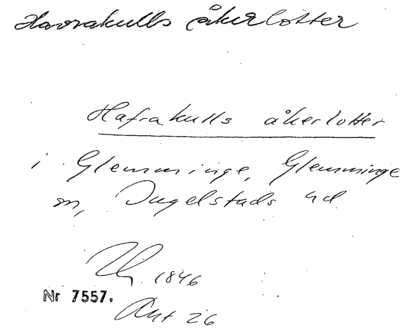 Havrakulls åkerlotter
Hafrakulls åkerlotter
i Glemminge, Glemminge
sn, Ingelstads hd.
1846
Nr 7557.
Akt 26